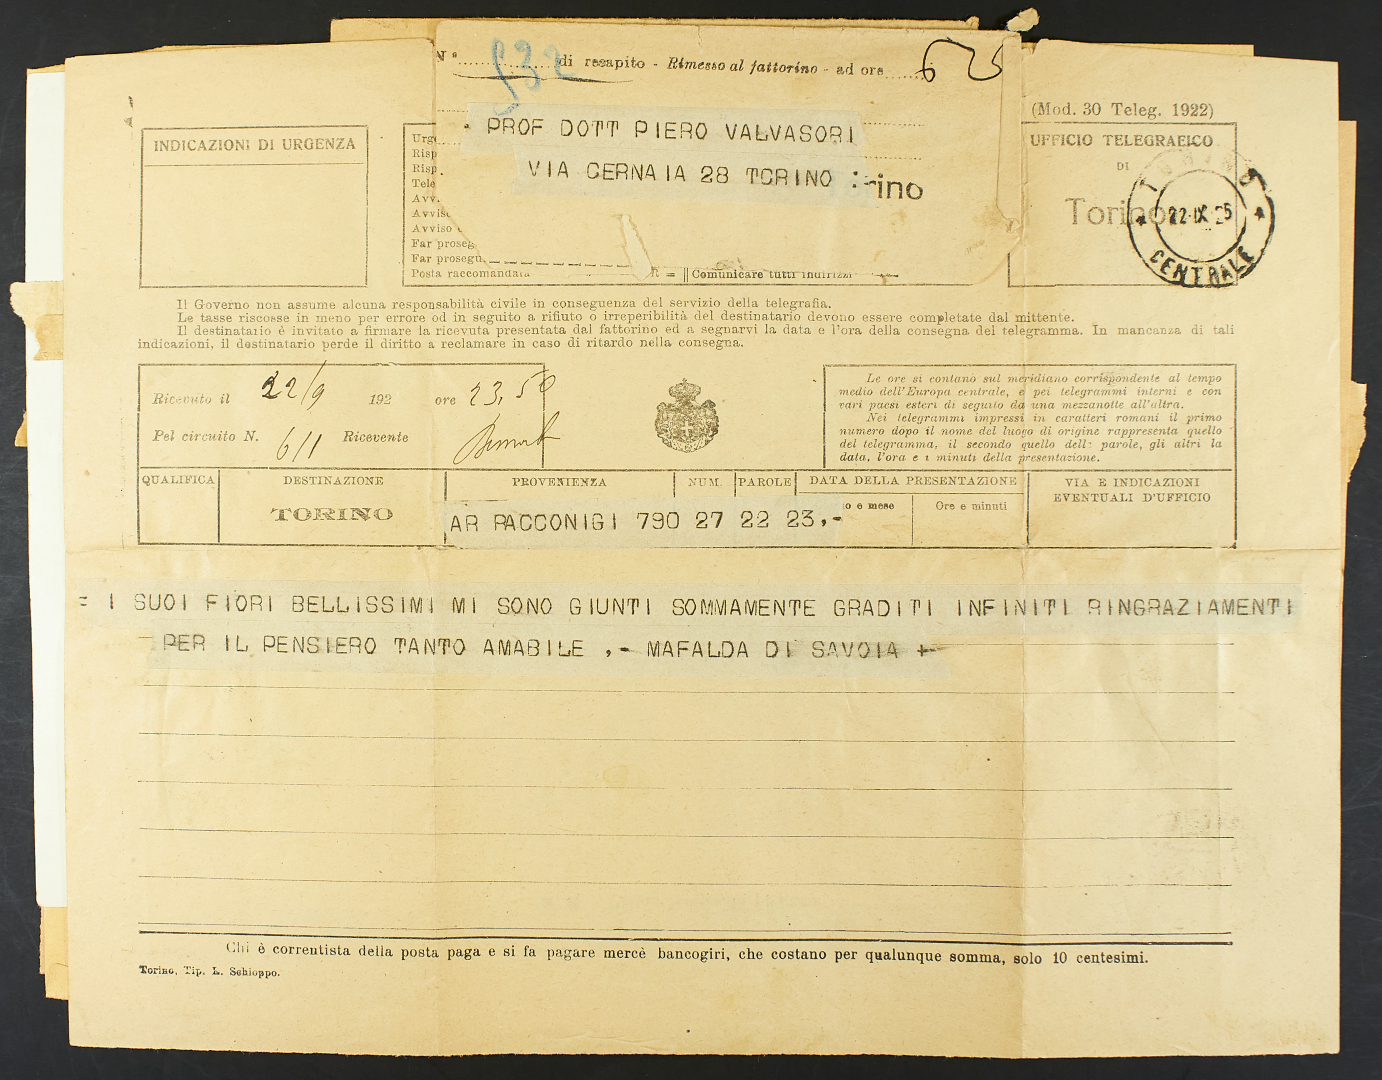 N° 532 di recapito - Rimesso al fattorino - ad ore 625
(Mod. 30 Teleg. 1922)
PROF DOTT PIERO VALVASORI
VIA CERNAIA 28 TORINO :-rino
INDICAZIONI DI URGENZA
Urg
Risp
Risp
Tele
Avv.
Avvis
Avviso
Far proseg
Far prosegu.
Posta raccomandata
= || Comunicare tutti indirizzi
UFFICIO TELEGRAFICO
DI
Torino
TORINO
22·IX 25
CENTRALE
Il Governo non assume alcuna responsabilità civile in conseguenza del servizio della telegrafia.
Le tasse riscosse in meno per errore od in seguito a rifiuto o irreperibilità del destinatario devono essere completate dal mittente.
Il destinatario è invitato a firmare la ricevuta presentata dal fattorino ed a segnarvi la data e l'ora della consegna del telegramma. In mancanza di tali
indicazioni, il destinatario perde il diritto a reclamare in caso di ritardo nella consegna.
Ricevuto il 22/9 192 ore 23,50
Pel circuito N. 611 Ricevente
Le ore si contano sul meridiano corrispondente al tempo
medio dell'Europa centrale, e pei telegrammi interni e con
vari paesi esteri di seguito da una mezzanotte all'altra.
Nei telegrammi impressi in caratteri romani il primo
numero dopo il nome del luogo di origine rappresenta quello
del telegramma, il secondo quello delle parole, gli altri la
data, l'ora e i minuti della presentazione.
QUALIFICA DESTINAZIONE PROVENIENZA NUM. PAROLE DATA DELLA PRESENTAZIONE VIA E INDICAZIONI
EVENTUALI D'UFFICIO
o e mese Ore e minuti
TORINO
AR RACCONIGI 790 27 22 23,-
= I SUOI FIORI BELLISSIMI MI SONO GIUNTI SOMMAMENTE GRADITI INFINITI RINGRAZIAMENTI
PER IL PENSIERO TANTO AMABILE ,- MAFALDA DI SAVOIA +
Chi è correntista della posta paga e si fa pagare mercè bancogiri, che costano per qualunque somma, solo 10 centesimi.
Torino, Tip. L. Schioppo.